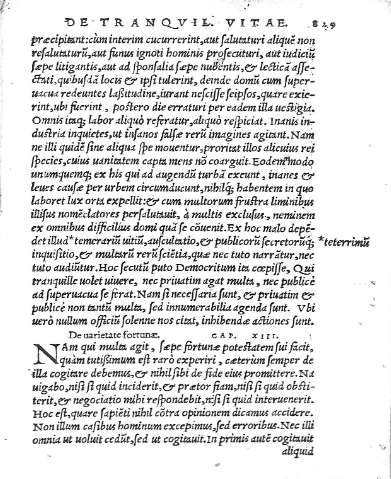 DE TRANQVIL. VITAE. 829
præcipitant: cùm interim cucurrerint, aut salutaturi aliquē non
resalutaturũ, aut funus ignoti hominis prosecuturi, aut iudiciũ
sæpe litigantis, aut ad sponsalia sæpe nubentis, & lecticā asse-
ctati, quibusdā locis & ipsi tulerint, deinde domũ cum super-
uacua redeuntes lassitudine, iurant nescisse seipsos, quare exie-
rint, ubi fuerint, postero die erraturi per eadem illa uestigia.
Omnis itaq; labor aliquò referatur, aliquò respiciat. Inanis in-
dustria inquietes, ut insanos falsæ rerũ imagines agitant. Nam
ne illi quidē sine aliqua spe mouentur, proritat illos alicuius rei
species, cuius uanitatem capta mens nō coarguit. Eodem modo
unumquemq; ex his qui ad augendũ turbā exeunt, inanes &
leues causæ per urbem circumducunt, nihilq; habentem in quo
laboret lux orta expellit: & cum multorum frustra liminibus
illisus nomēclatores persalutauit, à multis exclusus, neminem
ex omnibus difficilius domi quā se cōuenit. Ex hoc malo depē-
det illud * temerariũ uitiũ, auscultatio, & publicorũ secretorũq; *teterrimũ
inquisitio, & multarũ rerũ sciētia, quæ nec tuto narrātur, nec
tuto audiũtur. Hoc secutũ puto Democritum ita cœpisse, Qui
tranquille uolet uiuere, nec priuatim agat multa, nec publicè
ad superuacua se ferat. Nam si necessaria sunt, & priuatim &
publicè non tantũ multa, sed innumerabilia agenda sunt. Vbi
uerò nullum officiũ solenne nos citat, inhibendæ actiones sunt.
De uarietate fortunæ. CAP. XIII.
NAm qui multa agit, sæpe fortunæ potestatem sui facit,
quàm tutissimum est rarò experiri, cæterùm semper de
illa cogitare debemus, & nihil sibi de fide eius promittere. Na
uigabo, nisi si quid inciderit, & prætor fiam, nisi si quid obsti-
terit, & negociatio mihi respondebit, nisi si quid interuenerit.
Hoc est, quare sapiēti nihil cōtra opinionem dicamus accidere.
Non illum casibus hominum excepimus, sed erroribus. Nec illi
omnia ut uoluit cedũt, sed ut cogitauit. In primis autē cogitauit
aliquid